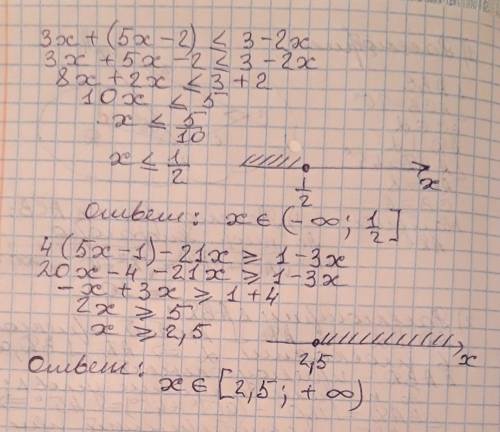 3x + (5x - 2) ≤ 3 - 2x
3x + 5x - 2 ≤ 3 - 2x
8x + 2x ≤ 3 + 2
10x ≤ 5
x ≤ 5/10
x ≤ 1/2
1/2 x
Ответ: x ∈ (-∞; 1/2]
4(5x - 1) - 21x ≥ 1 - 3x
20x - 4 - 21x ≥ 1 - 3x
-x + 3x ≥ 1 + 4
2x ≥ 5
x ≥ 2,5
2,5 x
Ответ:
x ∈ [2,5; +∞)